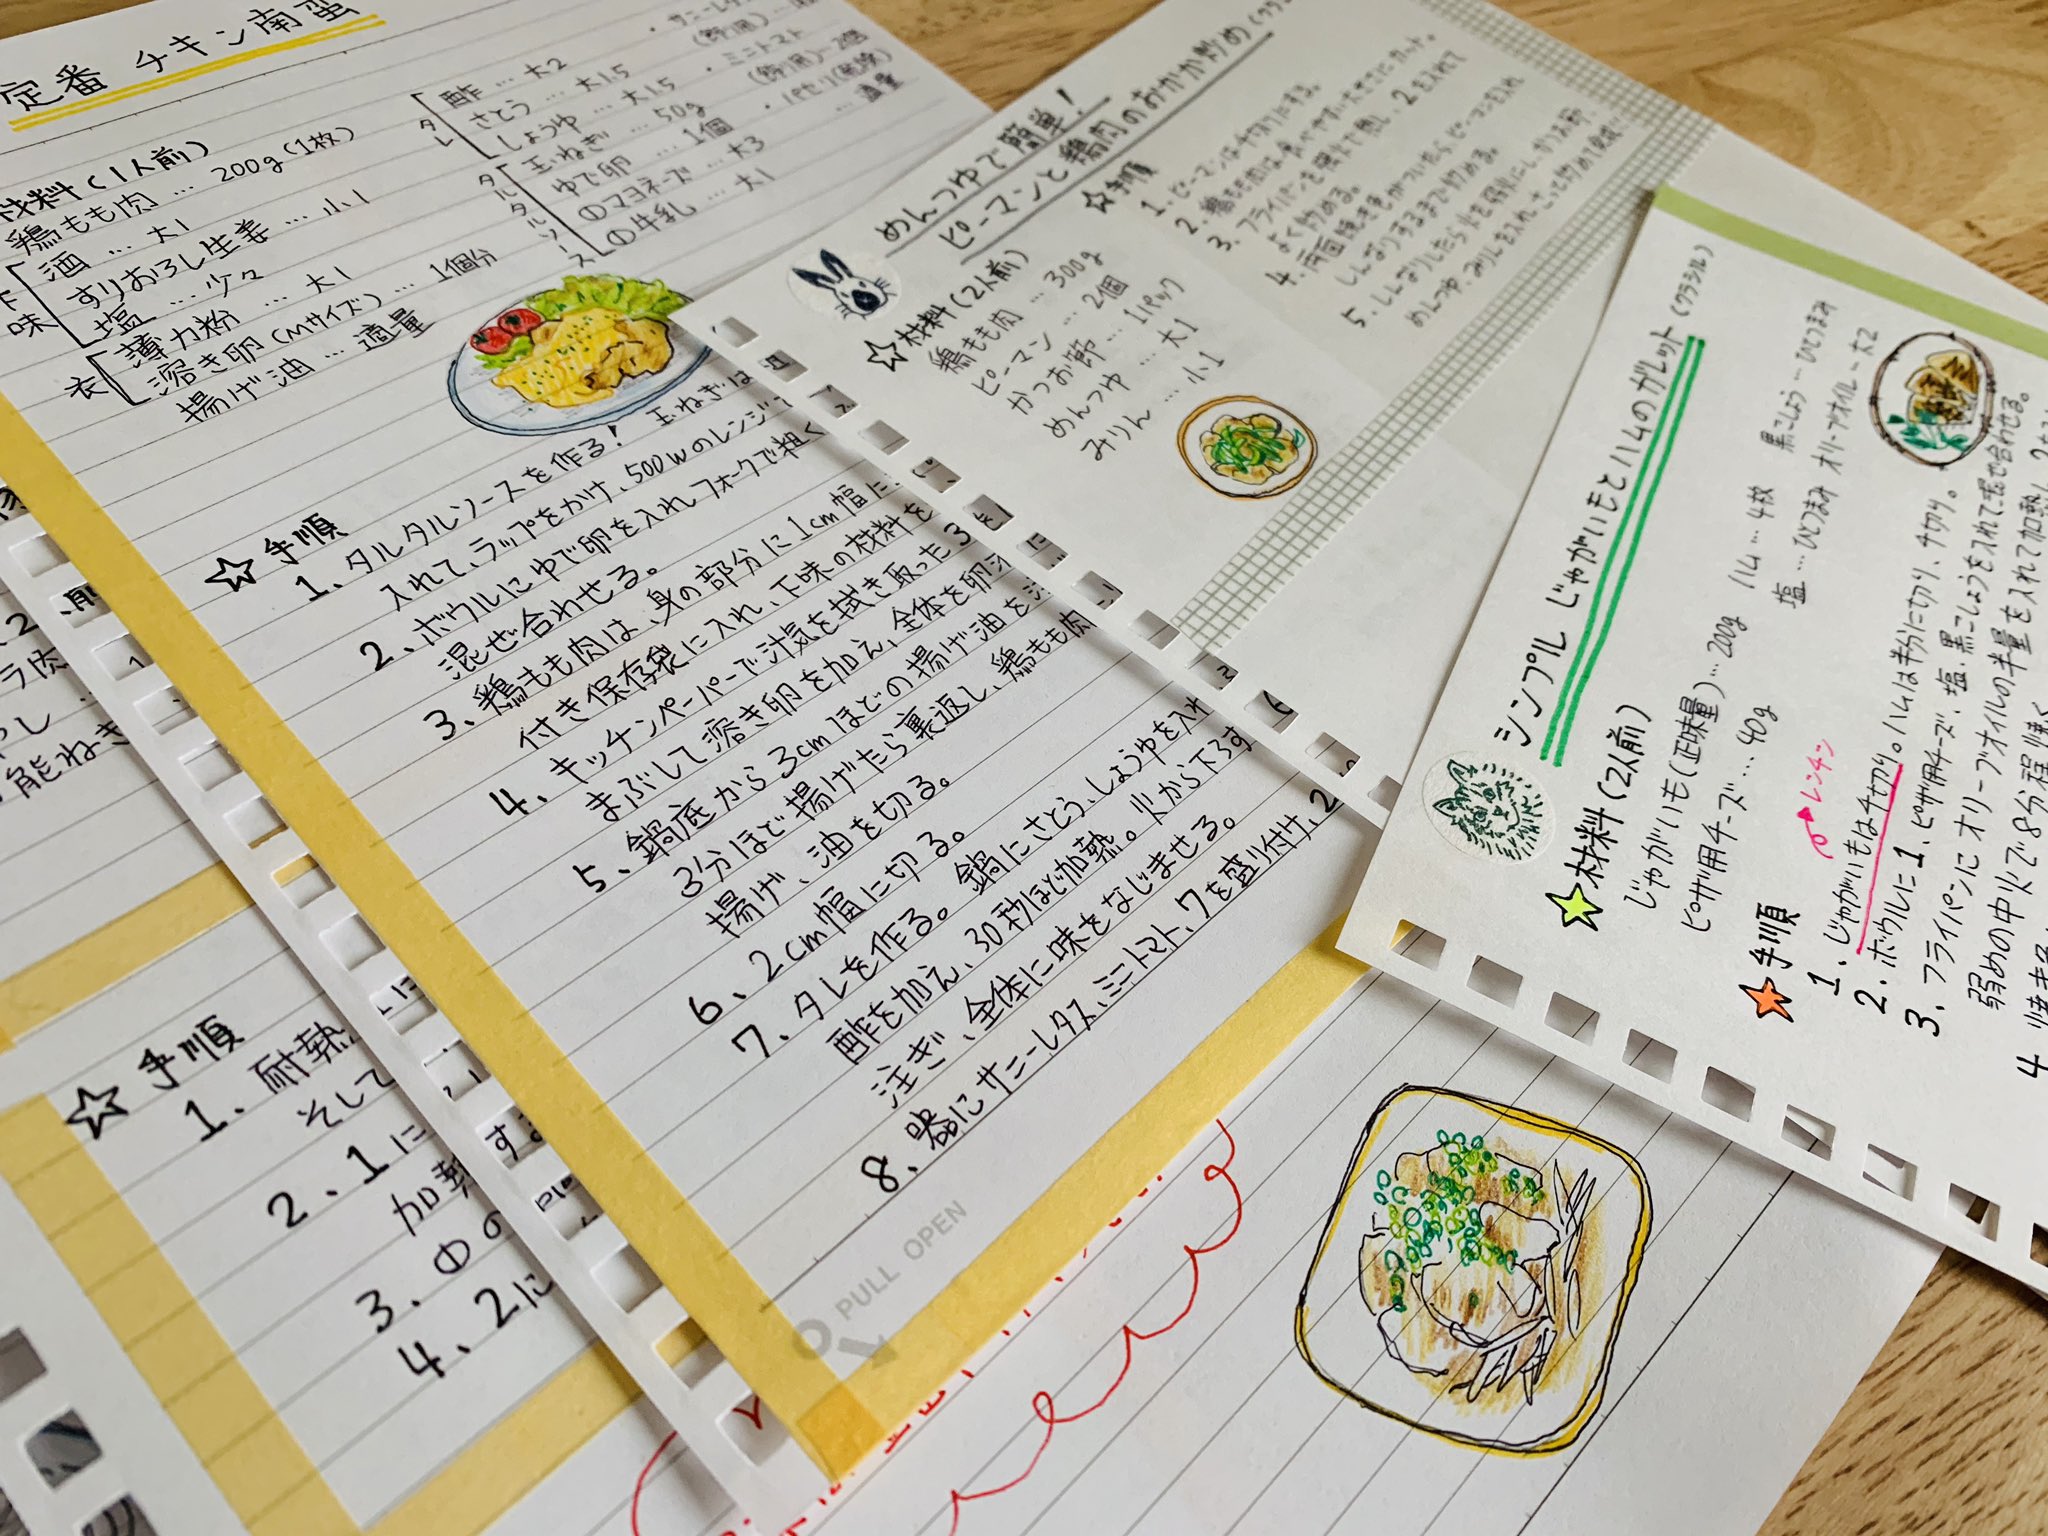 定番 チキン南蛮
材料(1人前)
鶏もも肉 … 200g(1枚)
下味
酒 … 大1
すりおろし生姜 … 小1
塩 … 少々
衣
薄力粉 … 大1
溶き卵(Mサイズ) … 1個分
揚げ油 … 適量
タレ
酢 … 大2
さとう … 大1.5
しょうゆ … 大1.5
タルタルソース
玉ねぎ … 50g
ゆで卵 … 1個
①マヨネーズ … 大3
①牛乳 … 大1
・サニーレタス
(飾り用)
・ミニトマト
(飾り用) … 2個
・パセリ(乾燥)
… 適量
☆手順
1、タルタルソースを作る! 玉ねぎは
入れて、ラップをかけ、500wのレンジで
2、ボウルにゆで卵を入れフォークで粗く
混ぜ合わせる。
3、鶏もも肉は、身の部分に1cm幅に
付き保存袋に入れ、下味の材料を
4、キッチンペーパーで汁気を拭き取った3を
まぶして溶き卵を加え、全体を卵液
5、鍋底から3cmほどの揚げ油を
3分ほど揚げたら裏返し、鶏もも肉
揚げ、油を切る。
6、2cm幅に切る。
7、タレを作る。鍋にさとう、しょうゆを入れ
酢を加え、30秒ほど加熱。火から下ろす
注ぎ、全体に味をなじませる。
8、器にサニーレタス、ミニトマト、7を盛り付け、2
PULL OPEN
めんつゆで簡単!
ピーマンと鶏肉のおかか炒め
☆材料(2人前)
鶏もも肉 … 300g
ピーマン … 2個
かつお節 … 1パック
めんつゆ … 大1
みりん … 小1
☆手順
1. ピーマンは千切りにする。
2. 鶏もも肉は食べやすい大きさにカット。
3. フライパンを強火で熱し、2を入れて
よく炒める。
4. 両面焼き色がついたらピーマンを入れ
しんなりするまで炒める。
5. しんなりしたら火を弱火にし、かつお節、
めんつゆ、みりんを入れ、さっと炒めて完成!!
シンプル じゃがいもとハムのガレット(クラシル)
☆材料(2人前)
じゃがいも(正味量)…200g
ピザ用チーズ…40g
ハム…4枚
塩…ひとつまみ
黒こしょう…ひとつまみ
オリーブオイル…大2
☆手順
レンチン
1、じゃがいもは千切り。ハムは半分に切り、千切り。
2、ボウルに1、ピザ用チーズ、塩、黒こしょうを入れて混ぜ合わせる。
3、フライパンにオリーブオイルの半量を入れて加熱し、
弱めの中火で8分程焼く
4
☆手順
1、耐熱
そして
2、1に
加熱
3、①の
4、2に